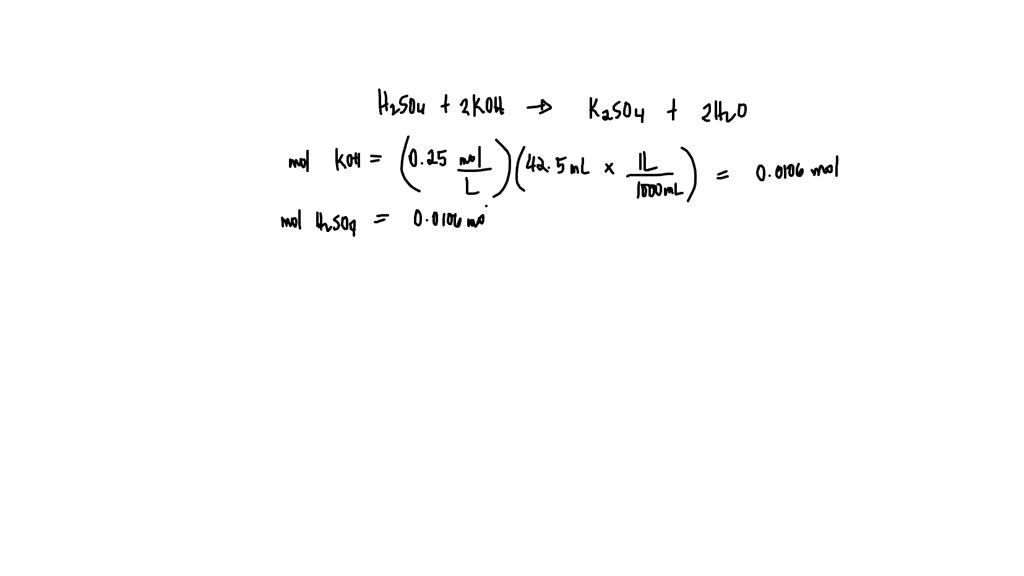 H₂SO₄ + 2KOH → K₂SO₄ + 2H₂O
mol KOH = (0.25 mol/L)(42.5 mL × 1L/1000mL) = 0.0106 mol
mol H₂SO₄ = 0.0106 mo